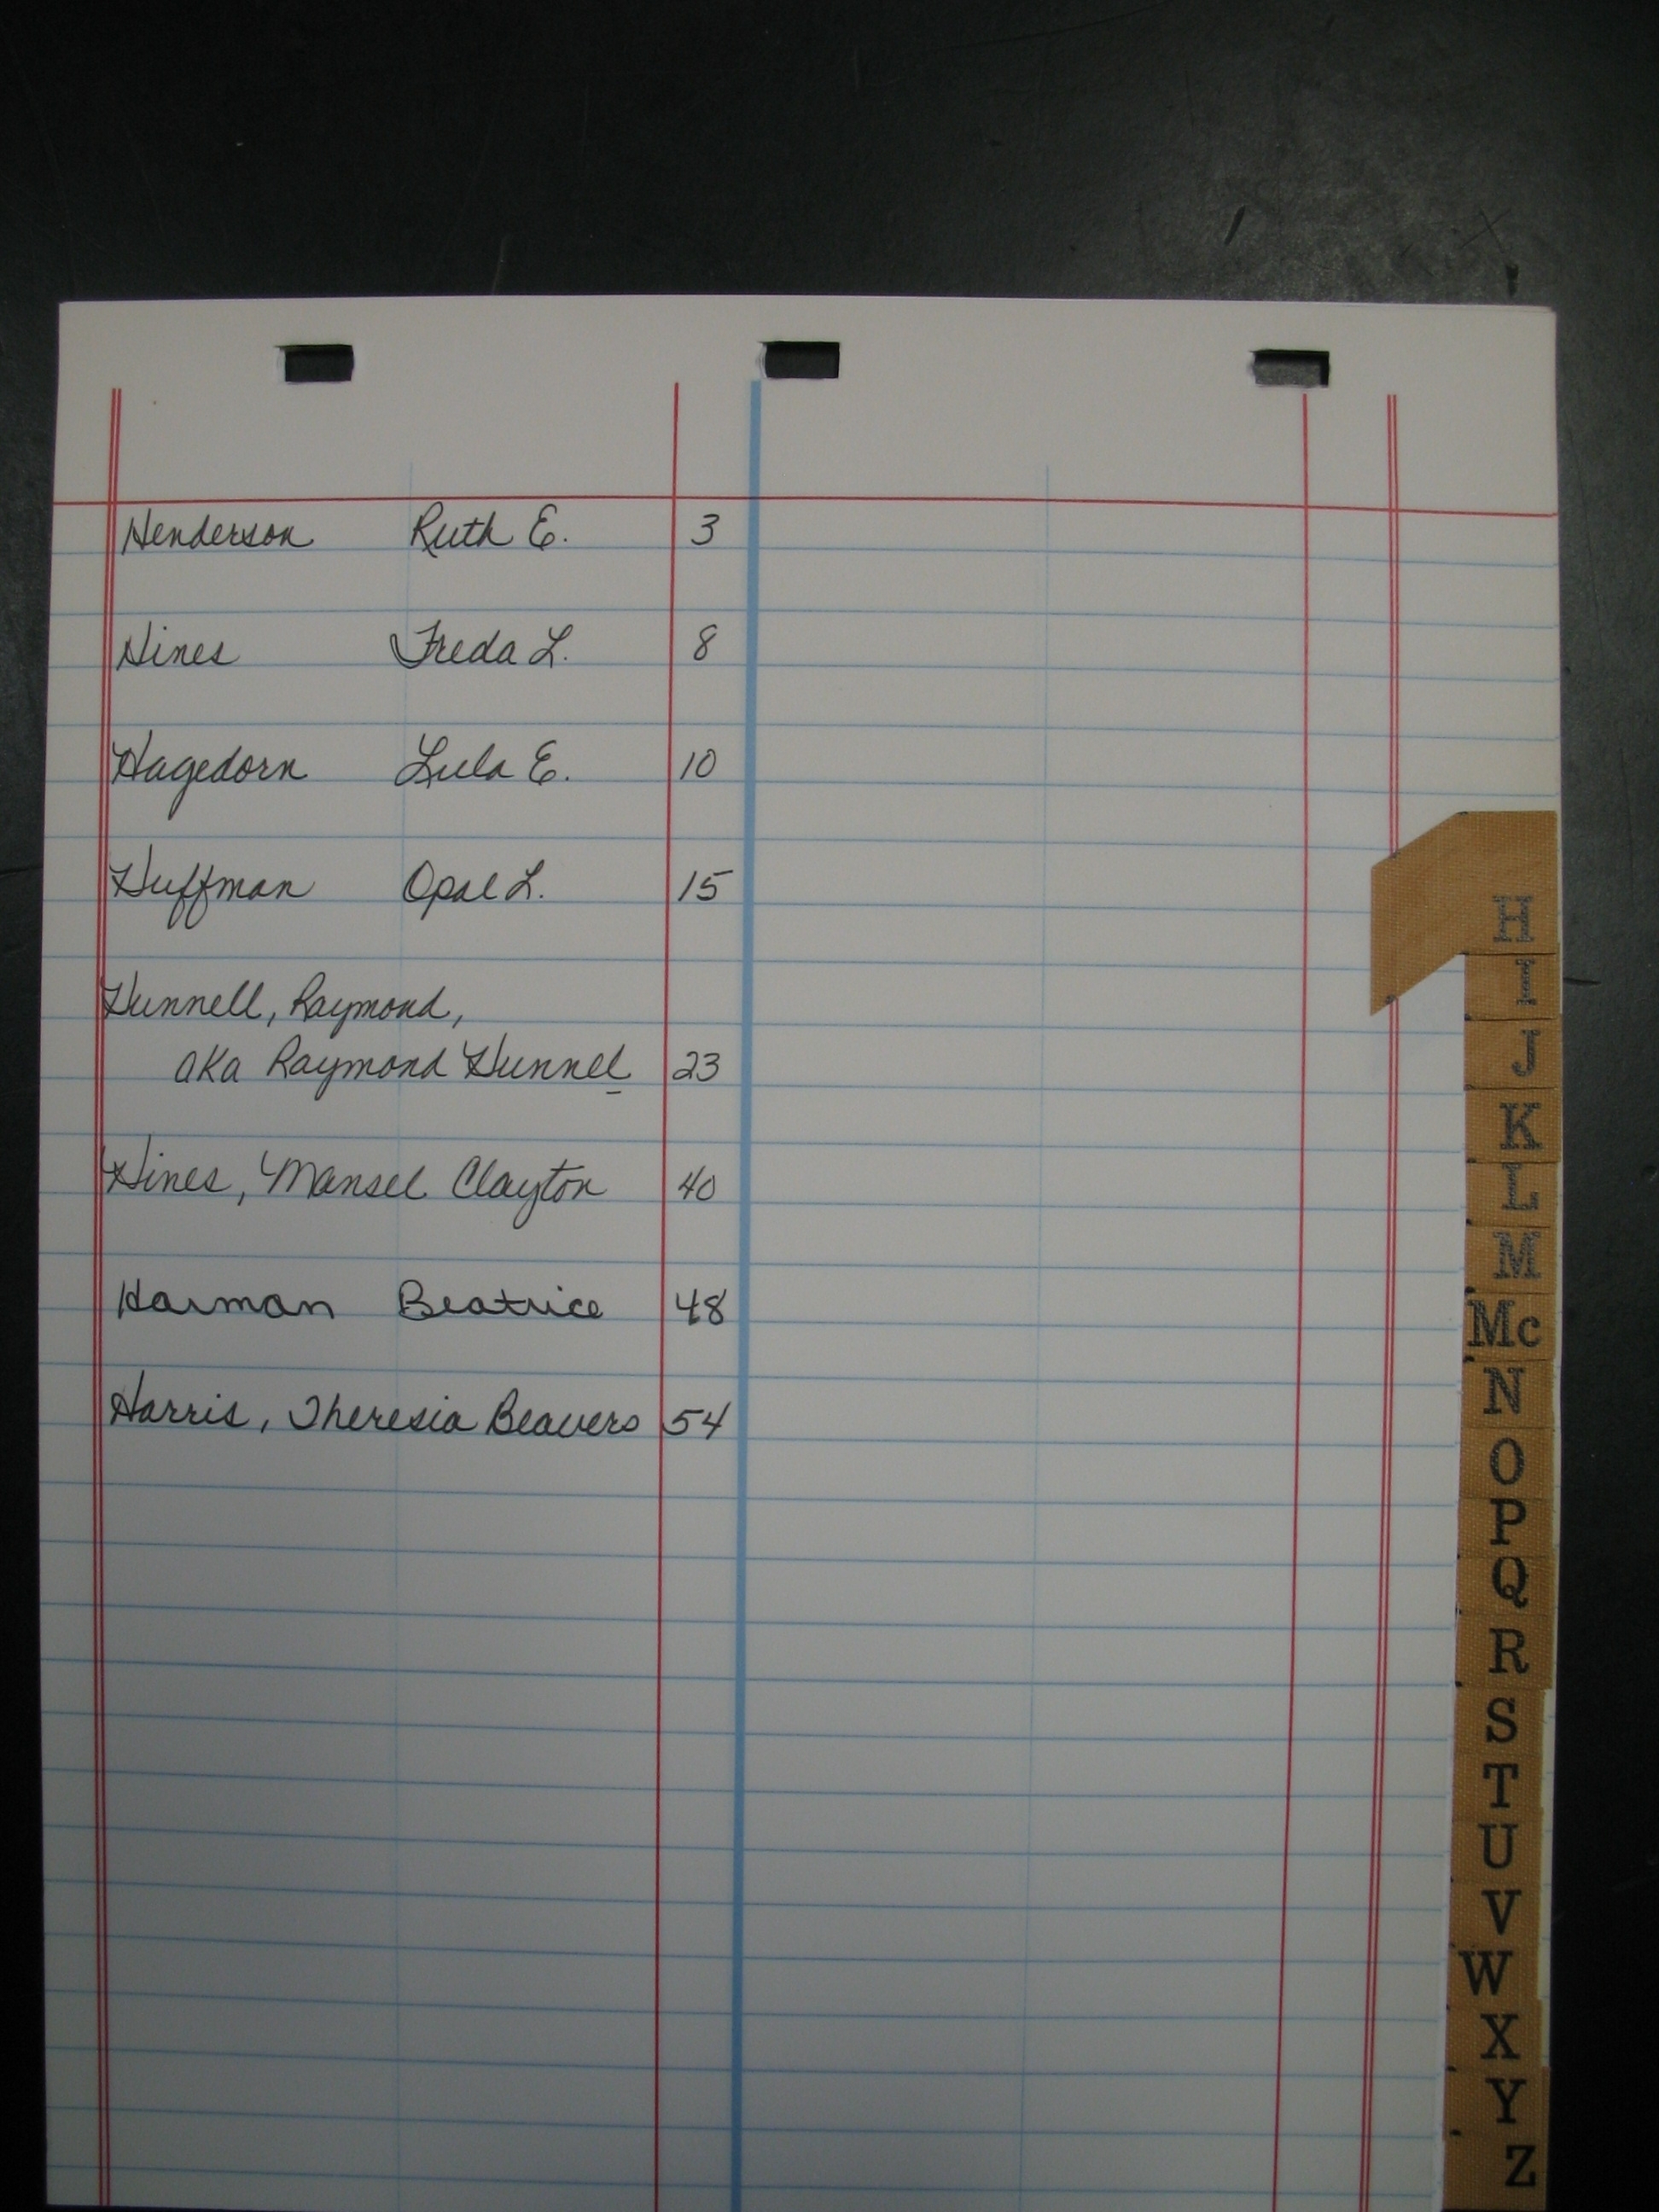 Henderson Ruth E. 3
Hines Freda L. 8
Hagedorn Lula E. 10
Huffman Opal L. 15
Hunnell, Raymond,
aka Raymond Hunnel 23
Hines, Mansel Clayton 40
Harman Beatrice 48
Harris, Theresia Beavers 54
H
I
J
K
L
M
Mc
N
O
P
Q
R
S
T
U
V
W
X
Y
Z